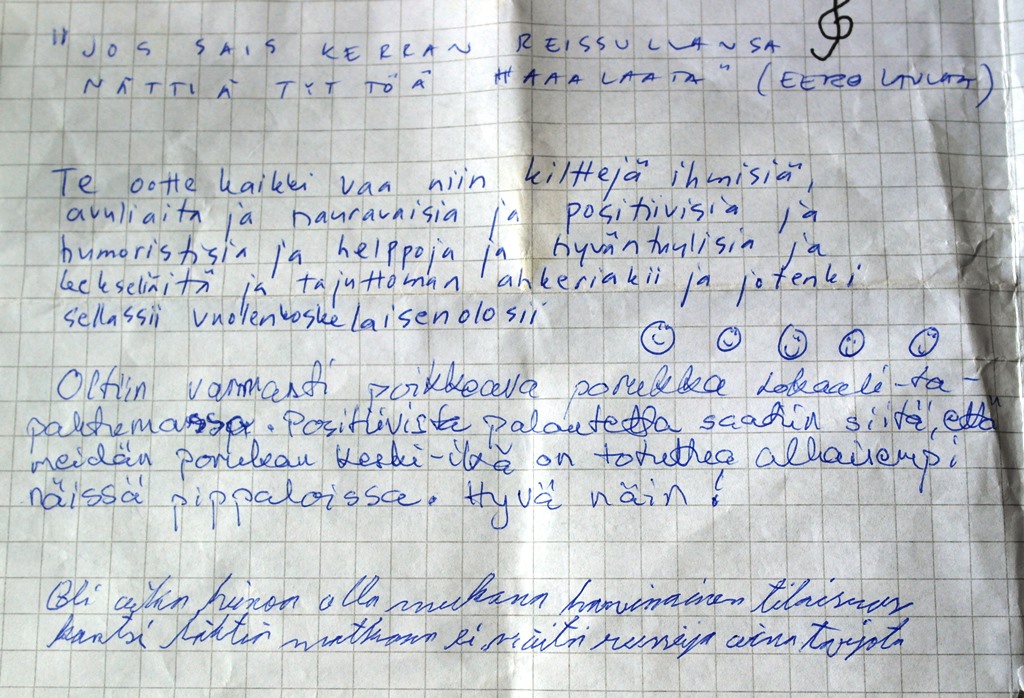 "JOS SAIS KERRAN REISSULLANSA
NÄTTIÄ TYTTÖÄ HAAALAATA" (EERO LAULAA)
Te ootte kaikki vaa niin kilttejä ihmisiä,
avuliaita ja nauravaisia ja positiivisia ja
humoristisia ja helppoja ja hyväntuulisia ja
kekseliäitä ja tajuttoman ahkeriakii ja jotenki
sellassii vuolenkoskelaisenolosii
Oltiin varmasti poikkeava porukka Lokaali-ta-
pahtumassa. Positiivista palautetta saatiin siitä, että
meidän porukan keski-ikä on totuttua alhaisempi
näissä pippaloissa. Hyvä näin!
Oli aika hienoa olla mukana tilaisuus
kantsi lähtiä matkaan ei näitä reissuja aina tarjota